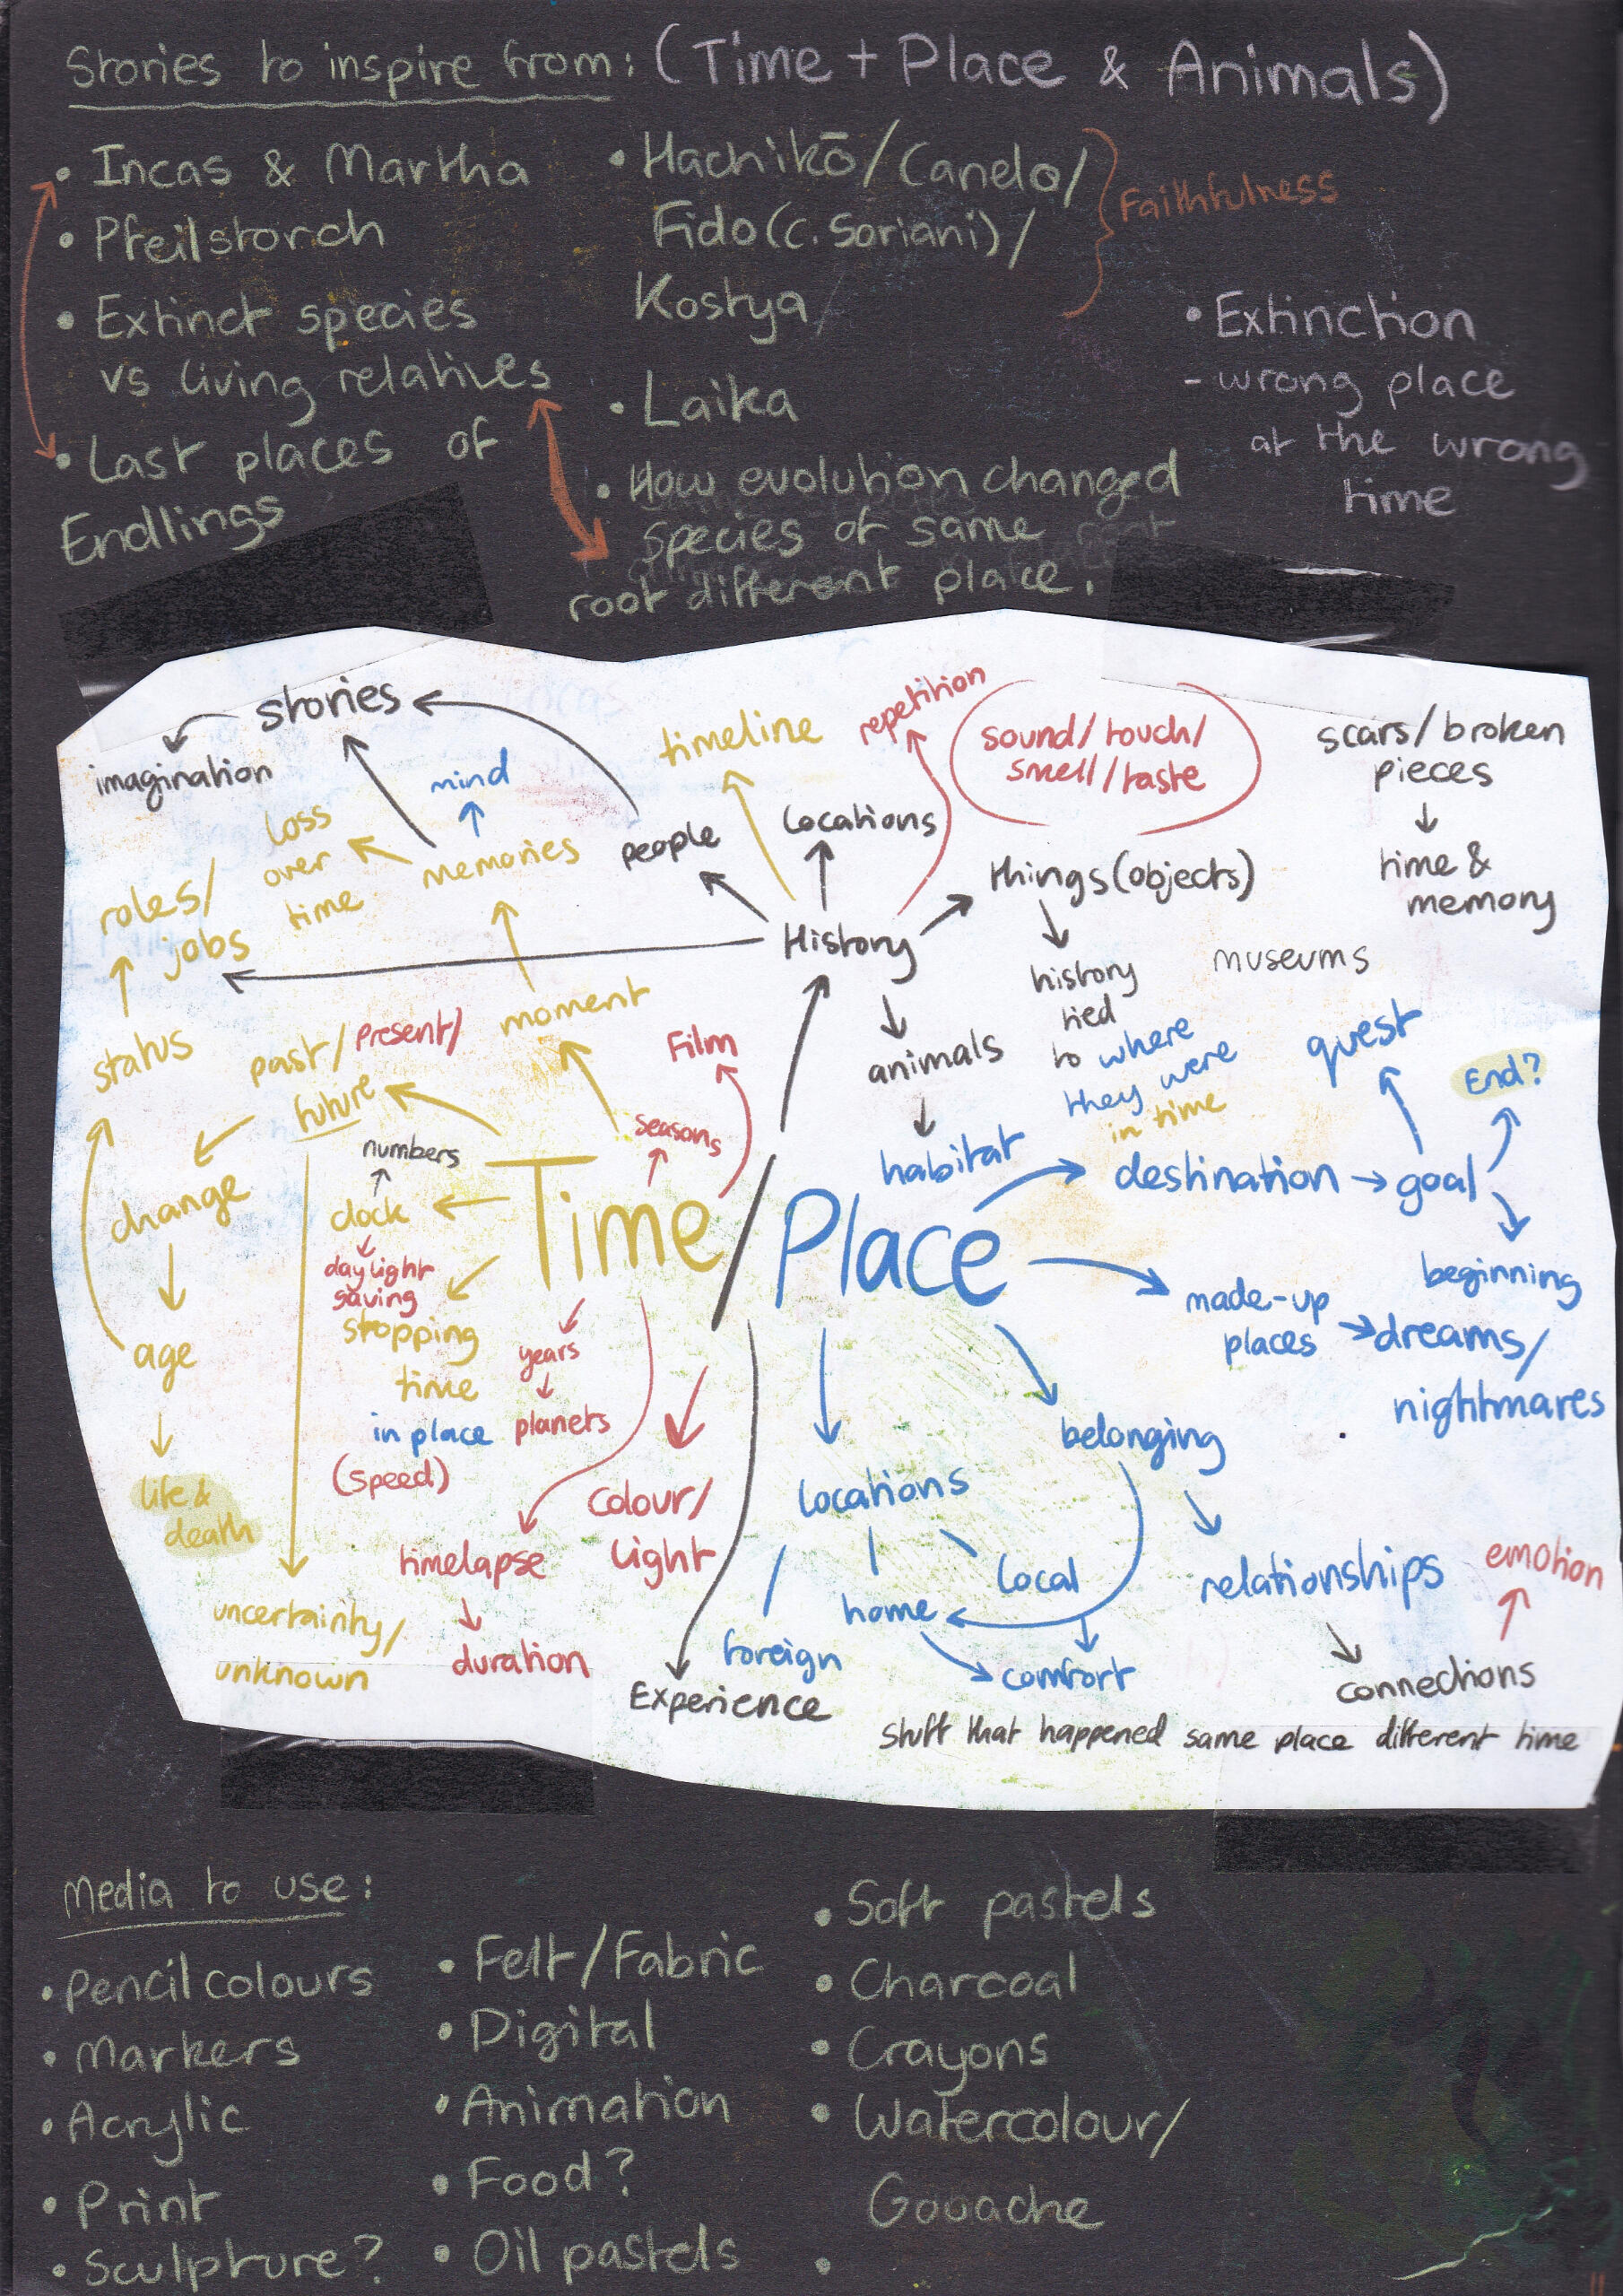 Stories to inspire from: (Time + Place & Animals)
• Incas & Martha
• Pfeilstorch
• Extinct species
vs living relatives
• Last places of
Endlings
• Hachikō/Canelo/
Fido (C. Soriani)/
Kostya
Faithfulness
• Laika
• How evolution changed
species of same
root different place.
• Extinction
- wrong place
at the wrong
time
stories
imagination
mind
memories
loss
over
time
roles/
jobs
status
people
timeline
repetition
Locations
sound/touch/
smell/taste
scars/broken
pieces
time &
memory
things (objects)
History
history
tied
to where
they were
in time
museums
animals
habitat
moment
Film
past/present/
future
seasons
numbers
clock
daylight
saving
change
age
life &
death
stopping
time
in place
(speed)
years
planets
Time / Place
colour/
light
timelapse
duration
uncertainty/
unknown
Experience
destination
goal
quest
End?
beginning
made-up
places
dreams/
nightmares
belonging
locations
foreign
home
local
comfort
relationships
connections
emotion
stuff that happened same place different time
Media to use:
• Pencil colours
• Markers
• Acrylic
• Print
• Sculpture?
• Felt/Fabric
• Digital
• Animation
• Food?
• Oil pastels
• Soft pastels
• Charcoal
• Crayons
• Watercolour/
Gouache
•